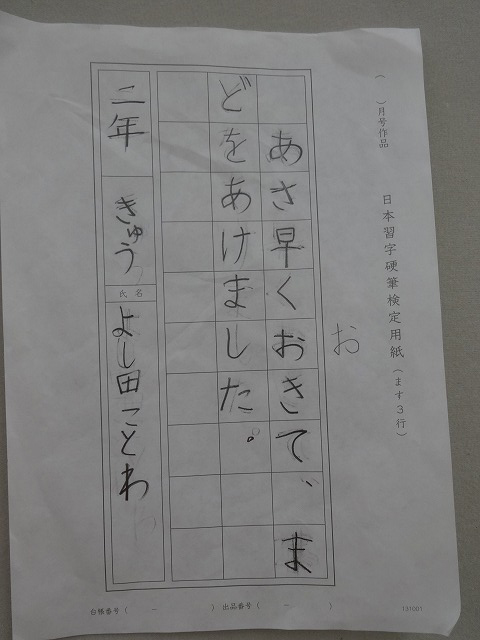 ( )月号作品 日本習字硬筆検定用紙(ます3行)
お
あさ早くおきて、ま
どをあけました。
二年 きゅう 氏名 よし田ことわ
台帳番号( - ) 出品番号( - ) 131001